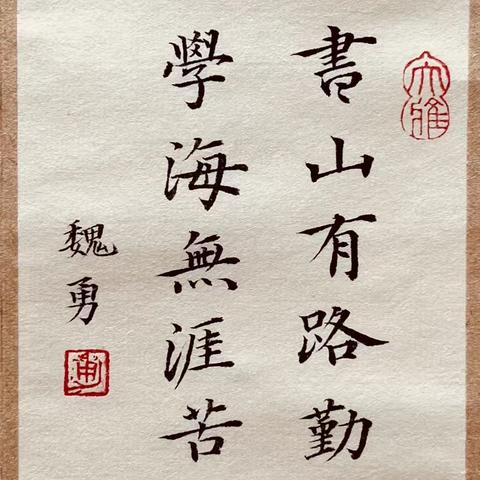 大雅
書山有路勤
學海無涯苦
魏勇